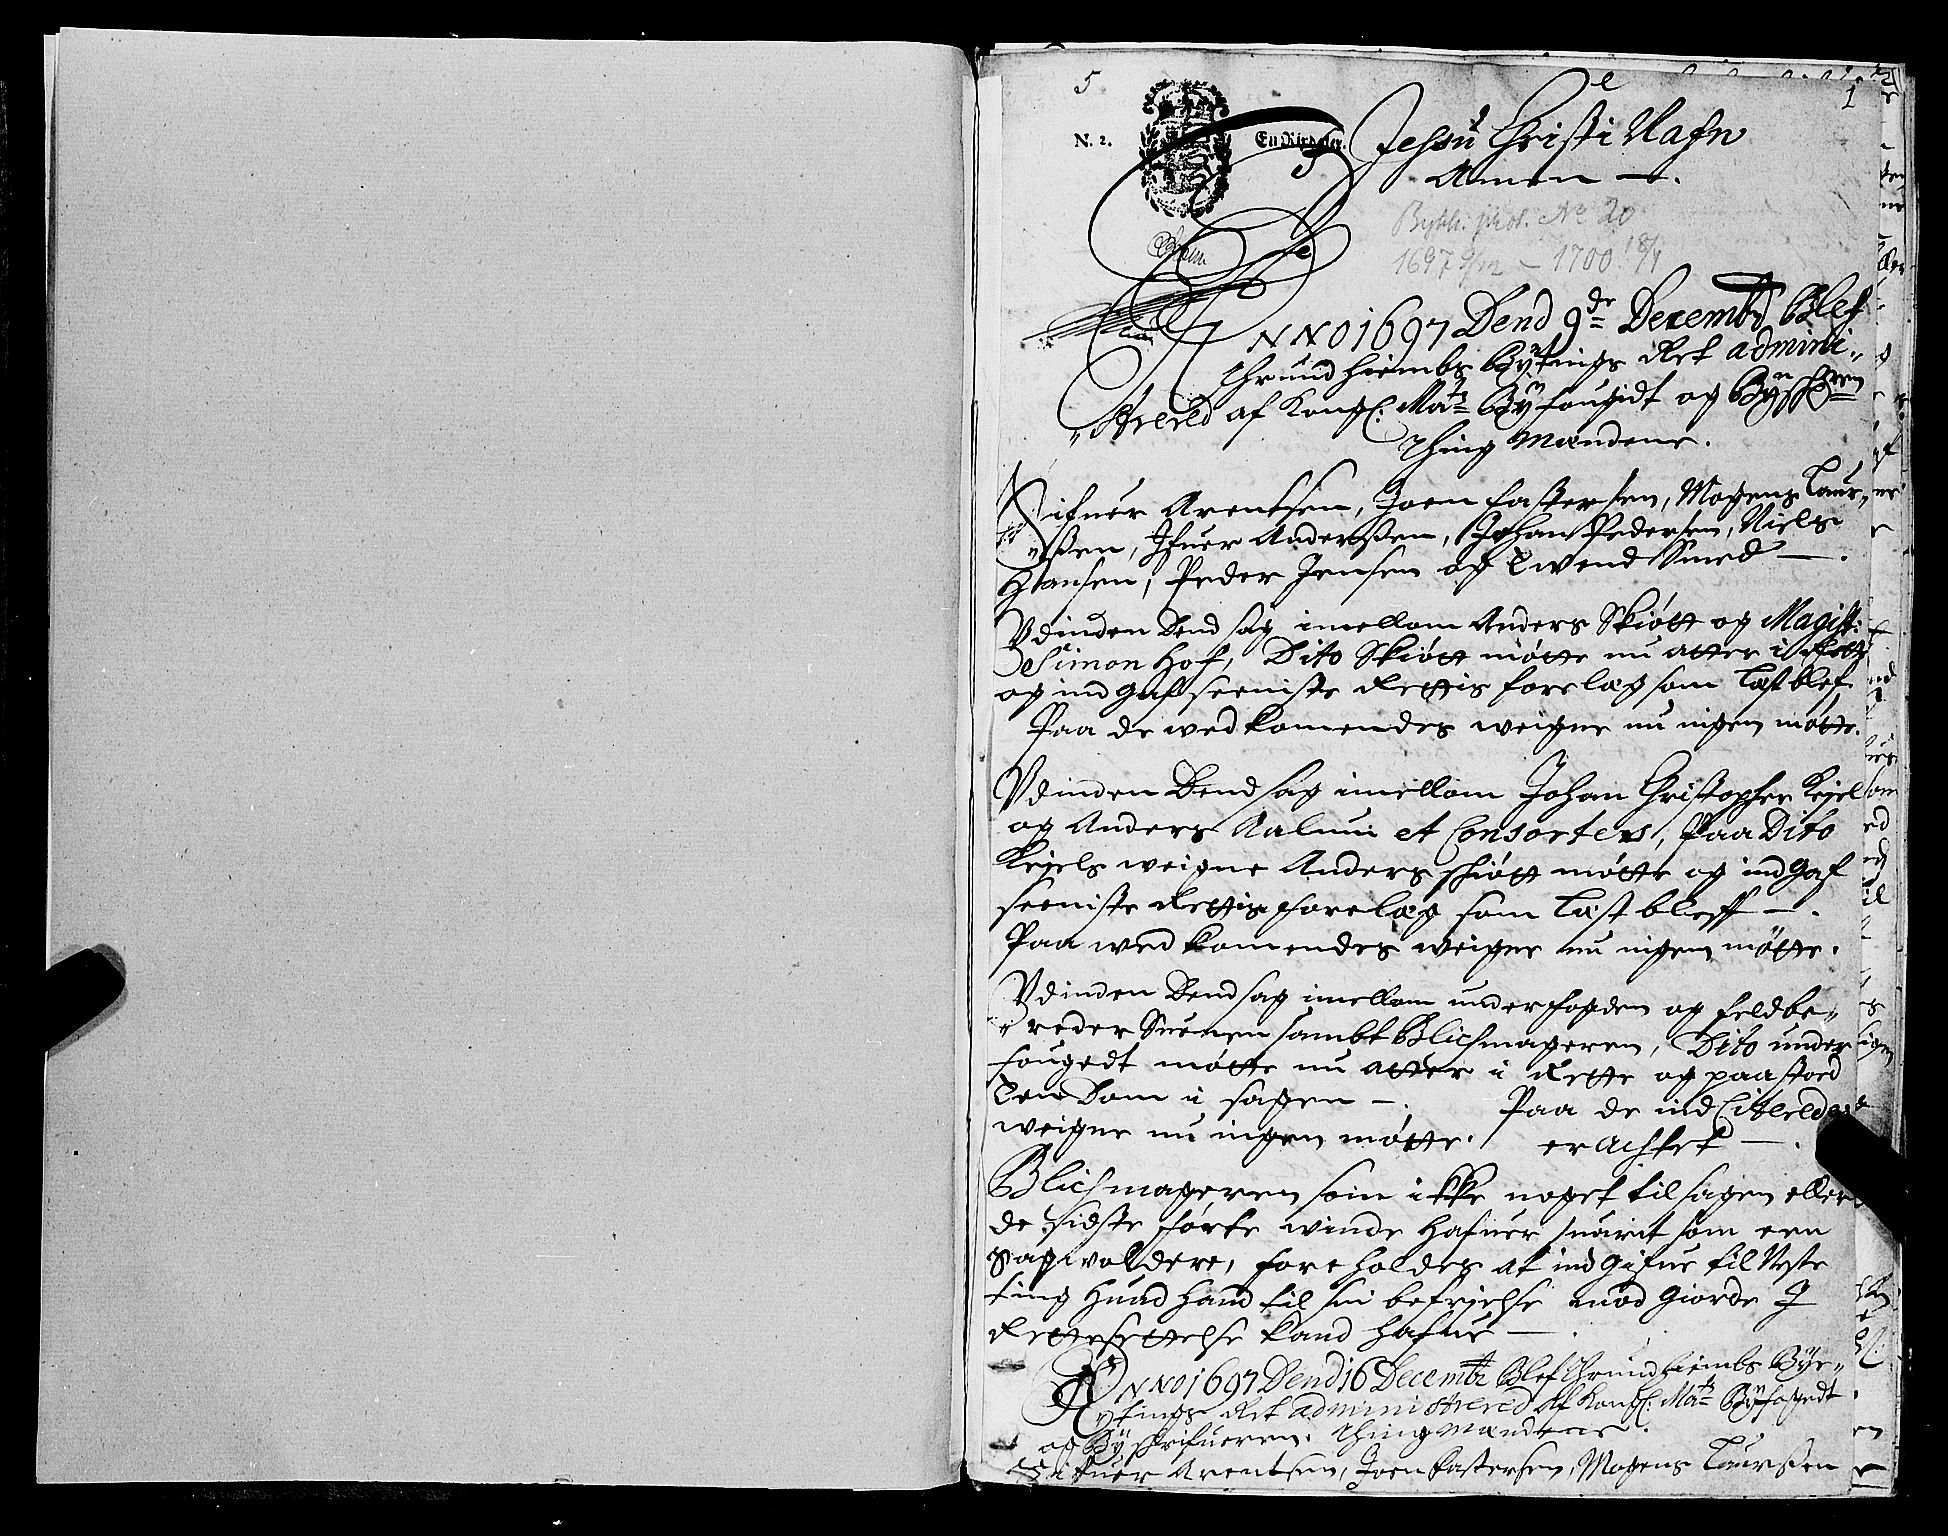 5
1
N. 2.
En Rixdaler.
J Jehsu Christi Nafn
Amen —.
Byth. prot. No 20
1697 9/12 – 1700 18/1
ANNO 1697 Dend 9de Decembr Blef
Thrundhiembs Bytings Ret admini„
„strered af Kongl: Mats Byfougidt og Byschrifueren
Thing Mændene.
Sifuer Arentsen, Joen Castersen, Mogens Laur„
„ssen, Ifuer Anderssen, Johan Pedersen, Niels
Hansen, Peder Jensen og Evend Smed —.
Udinden Dend sag imellom Anders Skiøtt og Magist:
Simon Hof, Dito Skiøtt møtte nu atter i Rette
og indgaf seeniste Rettis forelæg som læst blef.
Paa de wedkomendes weigne nu ingen møtte.
Udinden Dend sag imellom Johan Christopher Kejel
og Anders Aalum et Consortes, Paa Dito
Kejels weigne Anders schiøtt møtte og indgaf
seeniste Rettis forelæg som læst bleff —.
Paa wedkomendes weigne nu ingen møtte.
Udinden Dend sag imellom underfogden og feldbe„
„reder Suenen sambt Blichmageren, Dito under
fougedt møtte nu atter i Rette og paastoed
Een Dom i sagen —. Paa de ind Citeredes
weigne nu ingen møtte. er achtet —.
Blichmageren som ikke noget til sagen eller
de sidste førte winde hafuer suarit som een
Sagwoldere, foreholdes at indgifue til Neste
ting huad hand til sin befrielse mod giorde I
Rettesettelse kand hafue —.
ANNO 1697 Dend 16 Decembr Blef Thrundhiembs Bye„
„ytings Ret administrered af Kongl: Mats Byfogedt
og Byschrifueren. Thingmændene.
Sifuer Arentsen, Joen Castersen, Mogens Laurssen